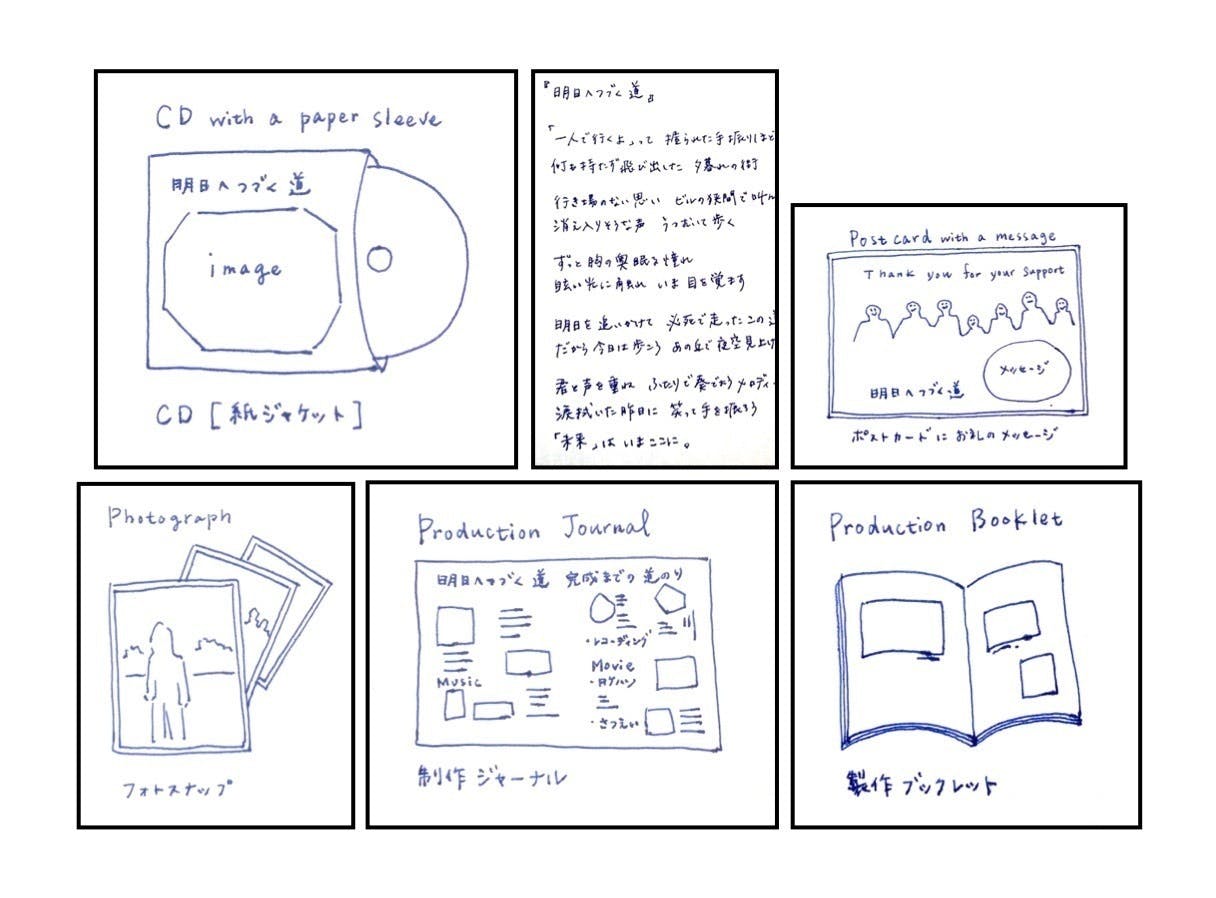 CD with a paper sleeve
明日へつづく道
image
CD [紙ジャケット]
『明日へつづく道』
「一人で行くよ」って 握られた手振りほど
何も持たず飛び出した 夕暮れの街
行き場のない思い ビルの狭間で叫ん
消え入りそうな声 うつむいて歩く
ずっと胸の奥眠る憧れ
眩い光に触れ いま 目を覚ます
明日を追いかけて 必死で走ったこの道
だから今日は歩こう あの丘で夜空見上げ
君と声を重ね ふたりで奏でよう メロディー
涙拭いた昨日に 笑って手を振ろう
「未来」はいまここに。
Post card with a message
Thank you for your support
メッセージ
明日へつづく道
ポストカードにお礼のメッセージ
Photograph
フォトスナップ
Production Journal
明日へつづく道 完成までの道のり
・レコーディング
Music
Movie
・ロケハン
・さつえい
制作ジャーナル
Production Booklet
製作ブックレット